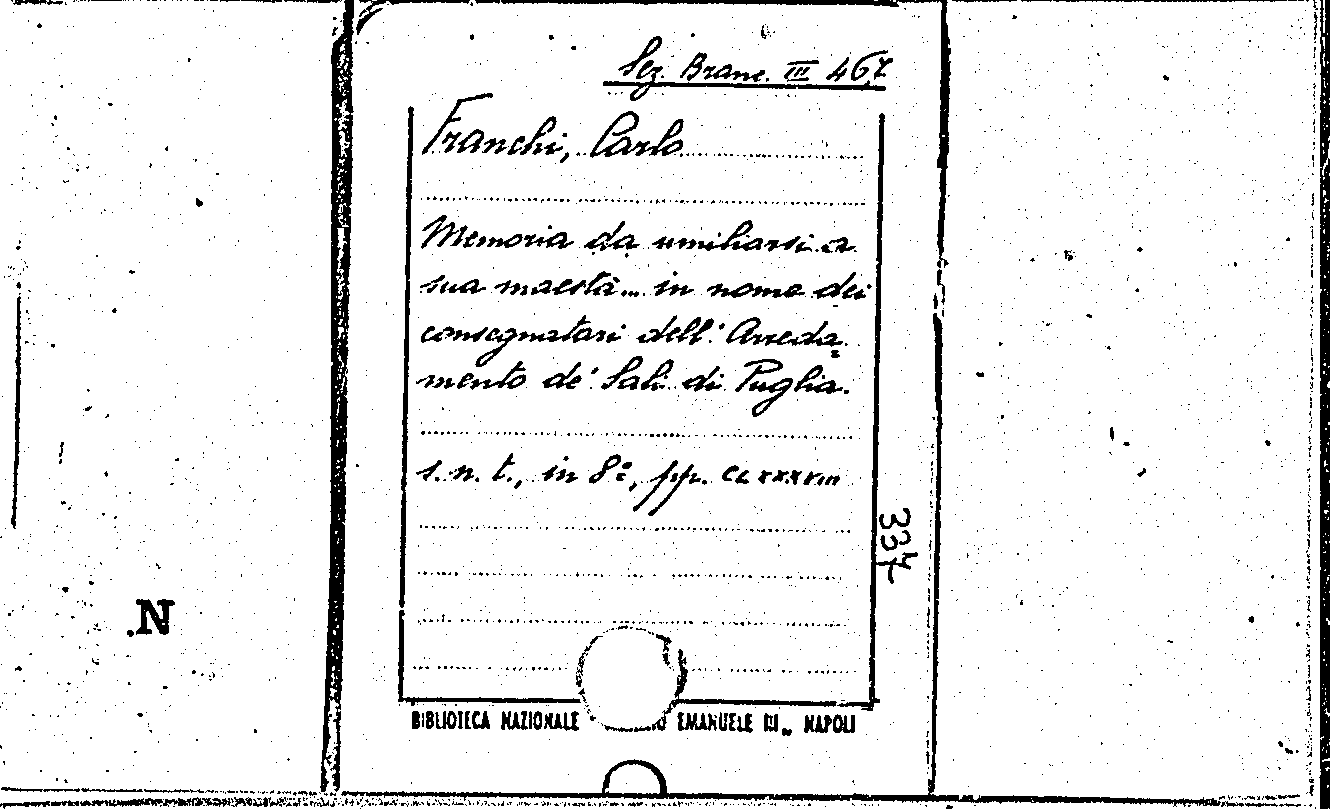 Sez. Branc. III 467
Franchi, Carlo
Memoria da umiliarsi a
sua maestà... in nome dei
consegnatari dell' Arreda=
mento de' Sali di Puglia.
s. n. t., in 8º, pp. CLXXXVIII
334
337
BIBLIOTECA NAZIONALE EMANUELE III„ NAPOLI
.N